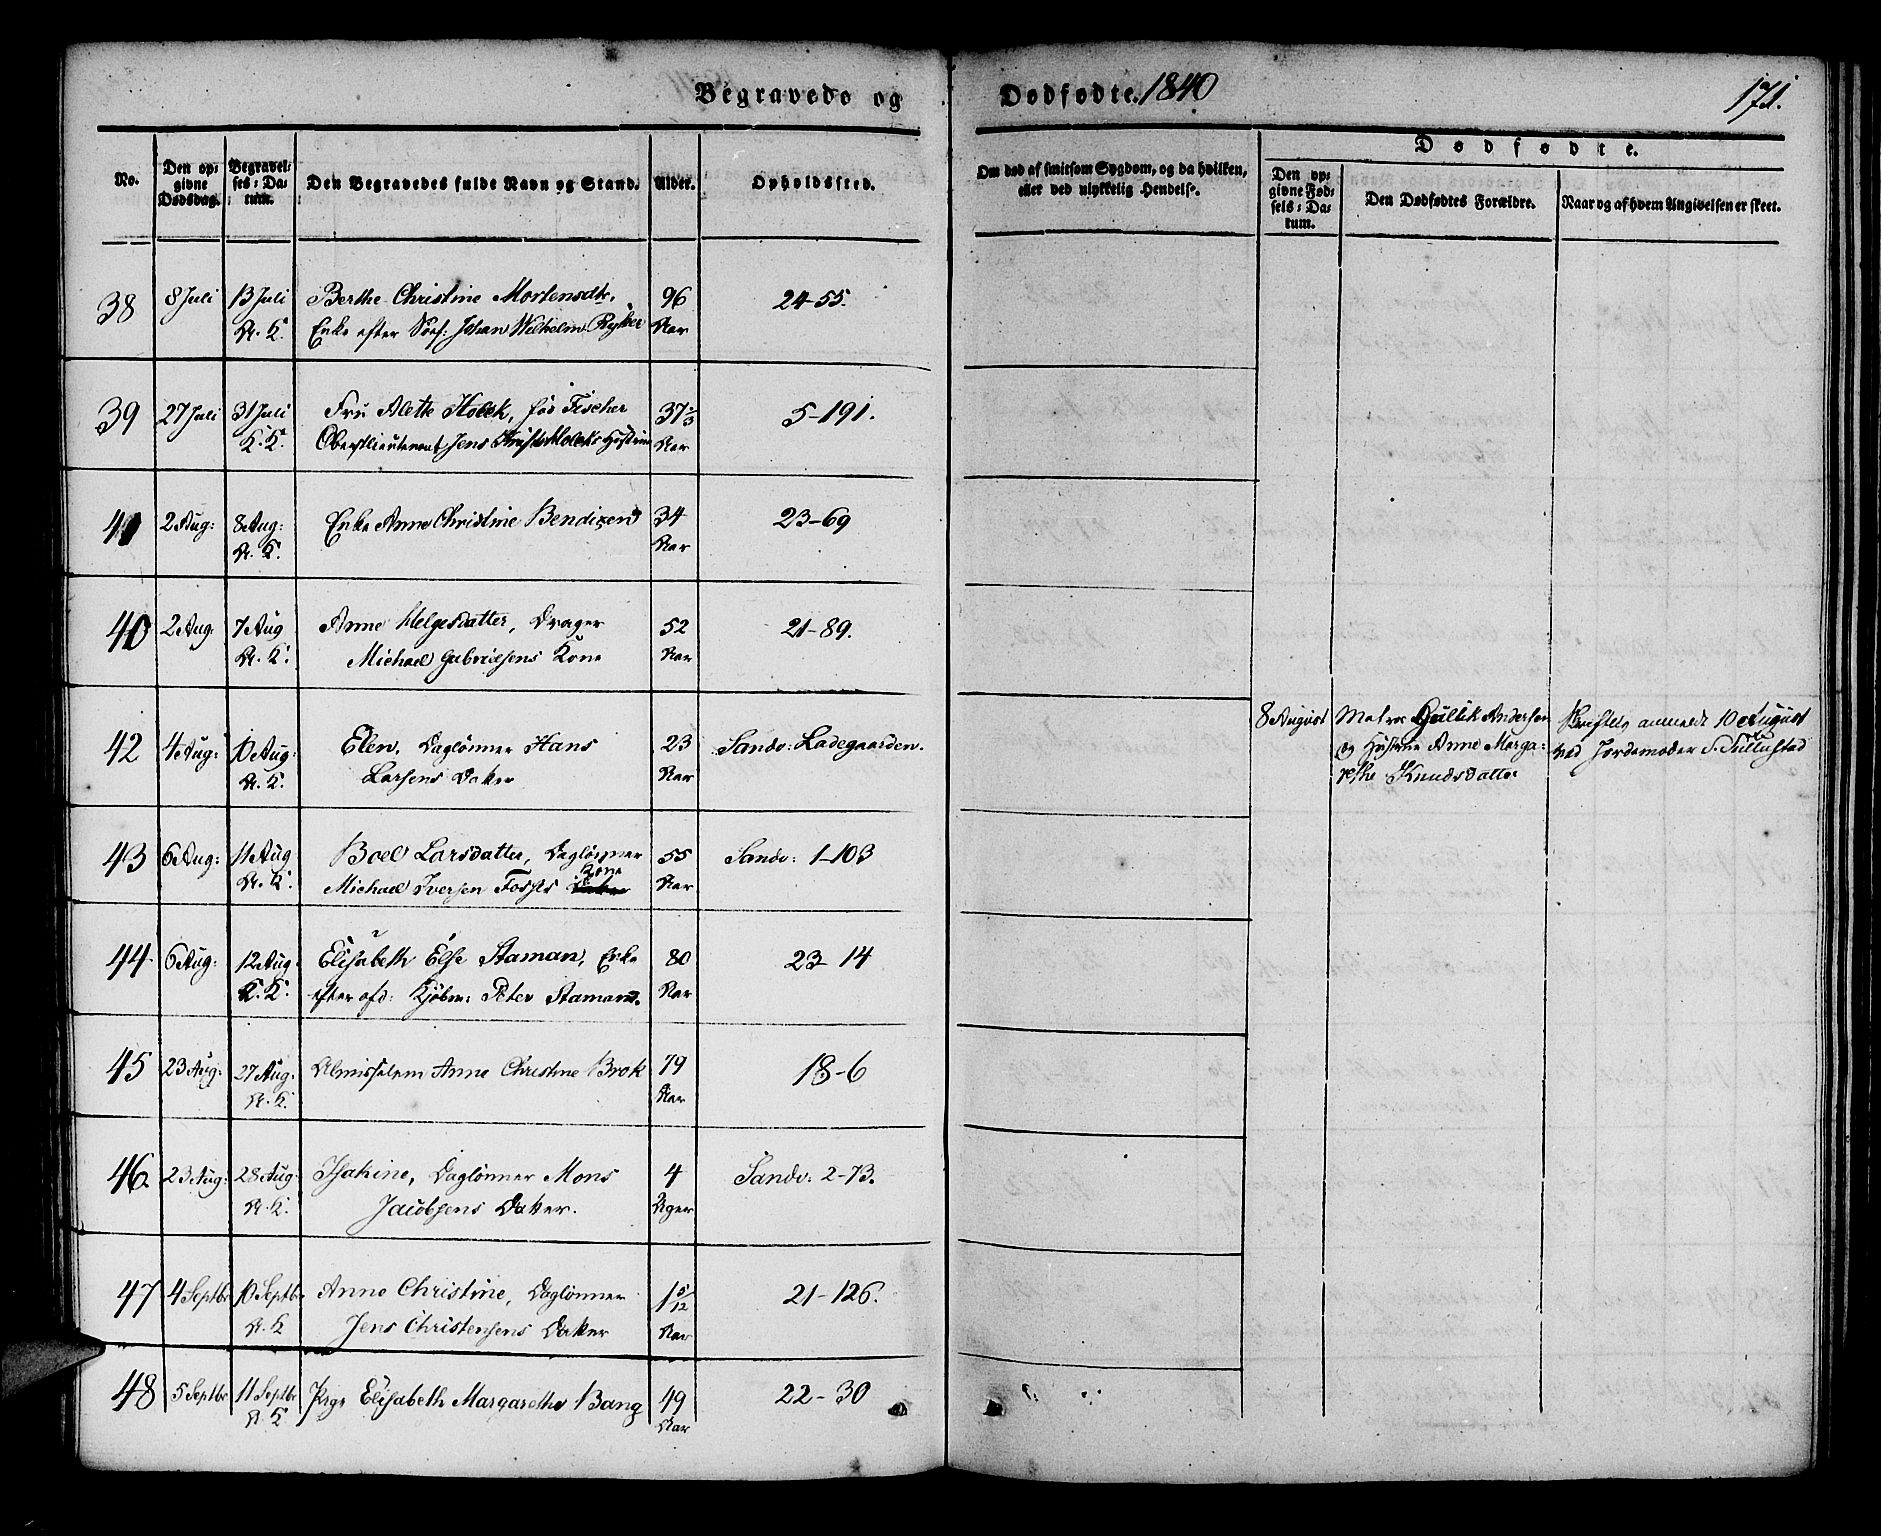 Begravede og Dødfødte. 1840
171.
No.
Den op=
givne
Dødsdag.
Begravel=
ses=Da=
tum.
Den Begravedes fulde Navn og Stand.
Alder.
Opholdssted.
Om død af smitsom Sygdom, og da hvilken,
eller ved ulykkelig Hendelse.
Dødfødte.
Den op=
givne Fød=
sels=Da=
tum.
Den Dødfødtes Forældre.
Naar og af hvem Angivelsen er skeet.
38 8 Juli 13 Juli Berthe Christine Mortensdtr, 96 24-55.
Enke efter Johan Wilhelm Aar
39 27 Juli 31 Juli Fru Alette Holck, fød Fischer 37 5-191.
K. K. Oberstlieutenant Jens Holcks Hustrue Aar
41 2 Aug: 8 Aug: Enke Anne Christine Bendixen 34 23-69
K. Aar
40 2 Aug: 7 Aug Anne Helgesdatter, Drager 52 21-89.
K. Michael Gabrielsens Kone Aar
42 4 Aug: 10 Aug: Elen, Daglønner Hans 23 Sandv: Ladegaarden.
K. Larsens Datter Aar
8 August Matros Gullik Andersen
og Hustrue Anne Marga=
rethe Knudsdatter
anmeldt 10 August
ved Jordemoder
43 6 Aug: 11 Aug Boel Larsdatter, Dagløner 55 Sandv: 1-103
K. Michael Iversen Fosses Kone Aar
44 6 Aug: 12 Aug: Elisabeth Else Staman, Enke 80 23-14
K. K. efter afd: Kjøbm: Peter Stamand. Aar
45 23 Aug: 27 Aug: Almisselem Anne Christine Brok 79 18-6
K. Aar
46. 23 Aug: 28 Aug: Daglønner Mons 4 Sandv: 2-73.
K. Jacobsens Datter. Uger
47 4 Septbr 10 Septbr Anne Christine, Dagløner 1 5/12 21-126.
K Jens Christensens Datter Aar
48 5 Septbr 11 Septbr Elisabeth Margarethe Bang 49 22-30
K Aar